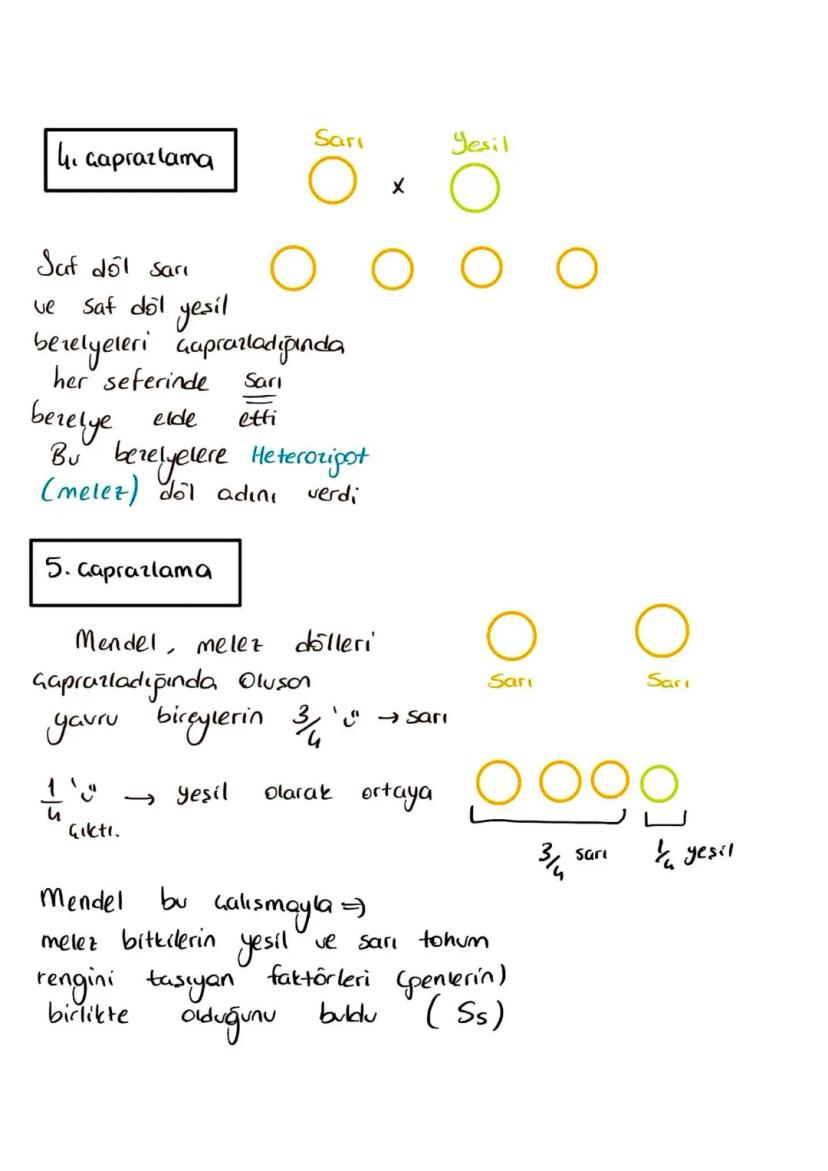 4. çaprazlama
Sarı
x
Yeşil
Saf döl sarı
ve saf döl yeşil
bezelyeleri çaprazladığında
her seferinde sarı
bezelye elde etti
Bu bezelyelere Heterozigot
(melez) döl adını verdi
5. çaprazlama
Mendel, melez dölleri
çaprazladığında oluşan
yavru bireylerin 3/4 'ü → sarı
Sarı
Sarı
1/4 'ü → yeşil olarak ortaya
çıktı.
3/4 sarı
1/4 yeşil
Mendel bu çalışmayla ⇒
melez bitkilerin yeşil ve sarı tohum
rengini taşıyan faktörleri (genlerin)
birlikte olduğunu buldu (Ss)